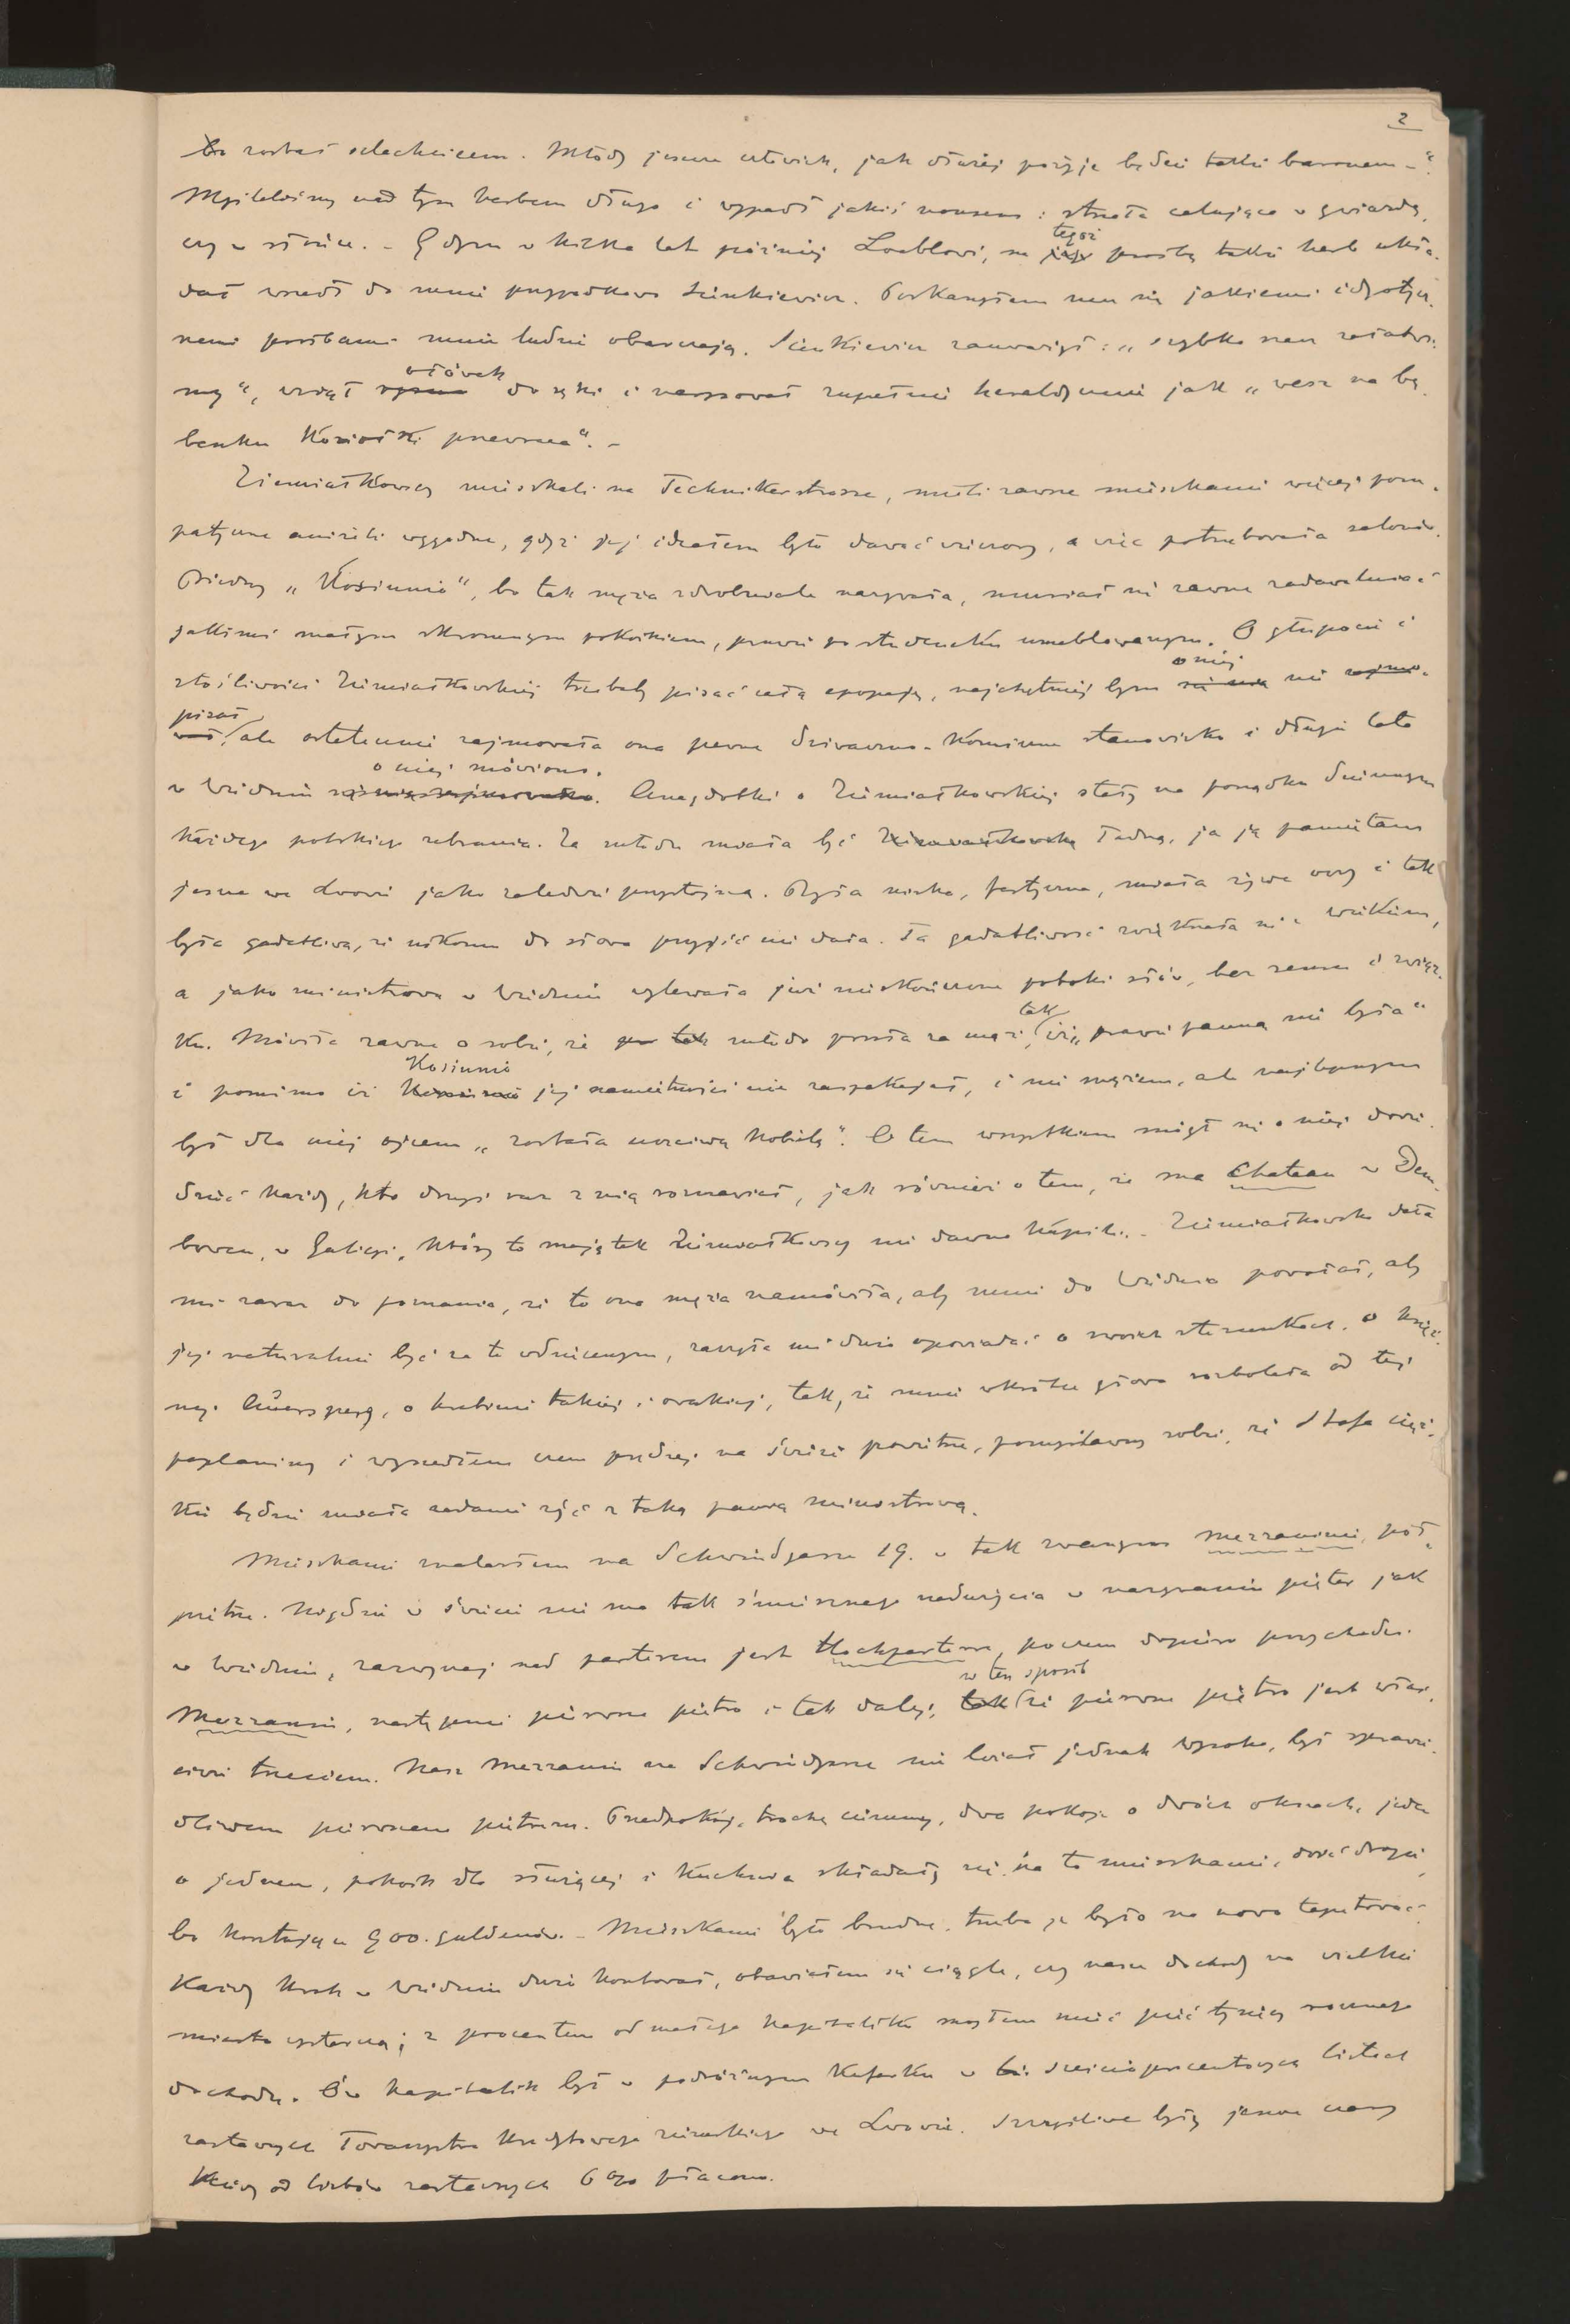 2
bo został szlachcicem. Młody jeszcze człowiek, jak dłużej pożyje będzie tatki baronem -“.
Myśleliśmy nad tym herbem długo i wypadł jakiś nonsens: strzała celująca w gwiazdę,
czy w słońce. - Gdym w kilka lat później Loeblowi, na tegoż prośbę takiż herb ukła-
dał wszedł do mnie przypadkowo Sienkiewicz. Poskarżyłem mu się jakiemi idyotycz-
nemi prośbami mnie ludzie obarczają. Sienkiewicz zauważył: „szybko sam załatwi-
my“, wziął ołówek do ręki i narysował zupełnie heraldycznie jak „wesz na bę-
benku koziołki przewraca“. -
Ziemiałkowscy mieszkali na Technikerstrasse, mieli zawsze mieszkanie więcej pom-
patyczne aniżeli wygodne, gdyż jej ideałem było dawać wieczory, a więc potrzebowała salonów.
Biedny „Kosiunio“, bo tak męża zdrobniale nazywała, musiał się zawsze zadawalniać
jakimś małym skromnym pokoikiem, prawie po studencku umeblowanym. O głupocie i
złośliwości Ziemiałkowskiej trzebaby pisać całą epopeję, najchętniej bym o niej nie
pisał, ale ostatecznie zajmowała ona pewne dziwaczno-komiczne stanowisko i długie lata
w Wiedniu o niej mówiono. Anegdotki o Ziemiałkowskiej stały na porządku dziennym
każdego polskiego zebrania. Za młodu miała być Ziemiałkowska ładną, ja ją pamiętam
jeszcze we Lwowie jako zaledwie przystojną. Była niska, tęga, miała żywe oczy i tak
była gadatliwa, że nikomu do słowa przyjść nie dała. Ta gadatliwość zwiększała się z wiekiem,
a jako ministrowa w Wiedniu wylewała już nieskończone potoki słów, bez sensu i związ-
ku. Mówiła zawsze o sobie, że tak młodo poszła za mąż, iż „prawie panną nie była“
i pomimo iż Kosiunio jej namiętności nie zaspakajał, i nie mężem, ale najlepszym
był dla niej ojcem „została uczciwą kobietą“. O tem wszystkiem mógł się o niej dowie-
dzieć każdy, kto drugi raz z nią rozmawiał, jak również o tem, że ma Chateau w Dem-
bowcu, w Galicyi, który to majątek Ziemiałkowscy nie dawno kupili. - Ziemiałkowska dała
mi zaraz do poznania, że to ona męża namówiła, aby mnie do Wiednia powołał, aby
jej naturalnie być za to wdzięcznym, zaczęła mi dużo opowiadać o swoich stosunkach, o księż-
nej Auersperg, o hrabinie takiej i owakiej, tak, że mnie wkrótce głowa rozbolała od tej
paplaniny i wyszedłem czem prędzej na świeże powietrze, pomyślawszy sobie, że Stafa cięż-
kie będzie miała zadanie żyć z taką panią ministrową.
Mieszkanie znalazłem na Schwindgasse 19. w tak zwanym mezzaninie, pół-
piętrze. Nigdzie w świecie nie ma tak śmiesznego nadużycia w nazywaniu pięter jak
w Wiedniu, zazwyczaj nad parterem jest Hochparterre, poczem dopiero przychodzi
Mezzanin, następnie pierwsze piętro i tak dalej, w ten sposób że pierwsze piętro jest właś-
ciwie trzeciem. Nasz Mezzanin na Schwindgasse nie leżał jednak wysoko, był sprawie-
dliwem pierwszem piętrem. Przedpokój, trochę ciemny, dwa pokoje o dwóch oknach, jeden
o jednem, pokoik dla służącej i kuchnia składały się na to mieszkanie, dość drogie,
bo kosztujące 900. guldenów. - Mieszkanie było brudne, trzeba je było na nowo tapetować.
Każdy krok w Wiedniu dużo kosztował, obawiałem się ciągle, czy nasze dochody na wielkie
miasto wystarczą; z procentem od małego kapitaliku mogłem mieć pięć tysięcy rocznego
dochodu. Ów kapitalik był w podróżnym kuferku w sześcioprocentowych listach
zastawnych Towarzystwa Kredytowego ziemskiego we Lwowie. Szczęśliwe były jeszcze czasy
kiedy od listów zastawnych 6% płacono.